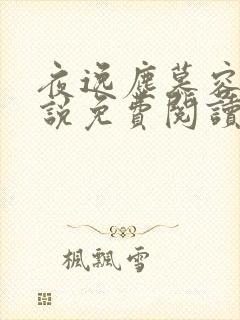 夜逸塵慕容
說免費閱讀
楓飄雪